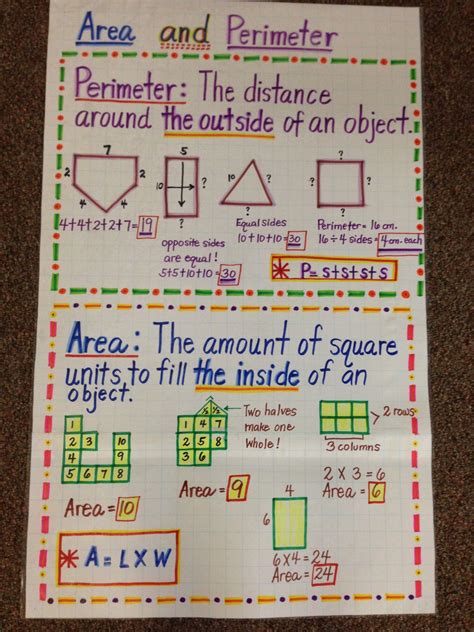 Area and Perimeter
Perimeter: The distance
around the outside of an object.
7
2 2
4 4
4+4+2+2+7= 19
5
10 ?
?
opposite sides
are equal!
5+5+10+10= 30
10 ?
?
Equal sides
10+10+10= 30
?
? ?
?
Perimeter = 16 cm.
16 ÷ 4 sides = 4 cm. each
* P= s+s+s+s
Area: The amount of square
units to fill the inside of an
object.
1
2 3 10
4 9
5 6 7 8
Area = 10
½ ½
1 4 7
2 5 8
3 6
Two halves
make one
whole!
Area = 9
2 rows
3 columns
2 X 3 = 6
Area = 6
4
6
6X4 = 24
Area = 24
* A = L X W